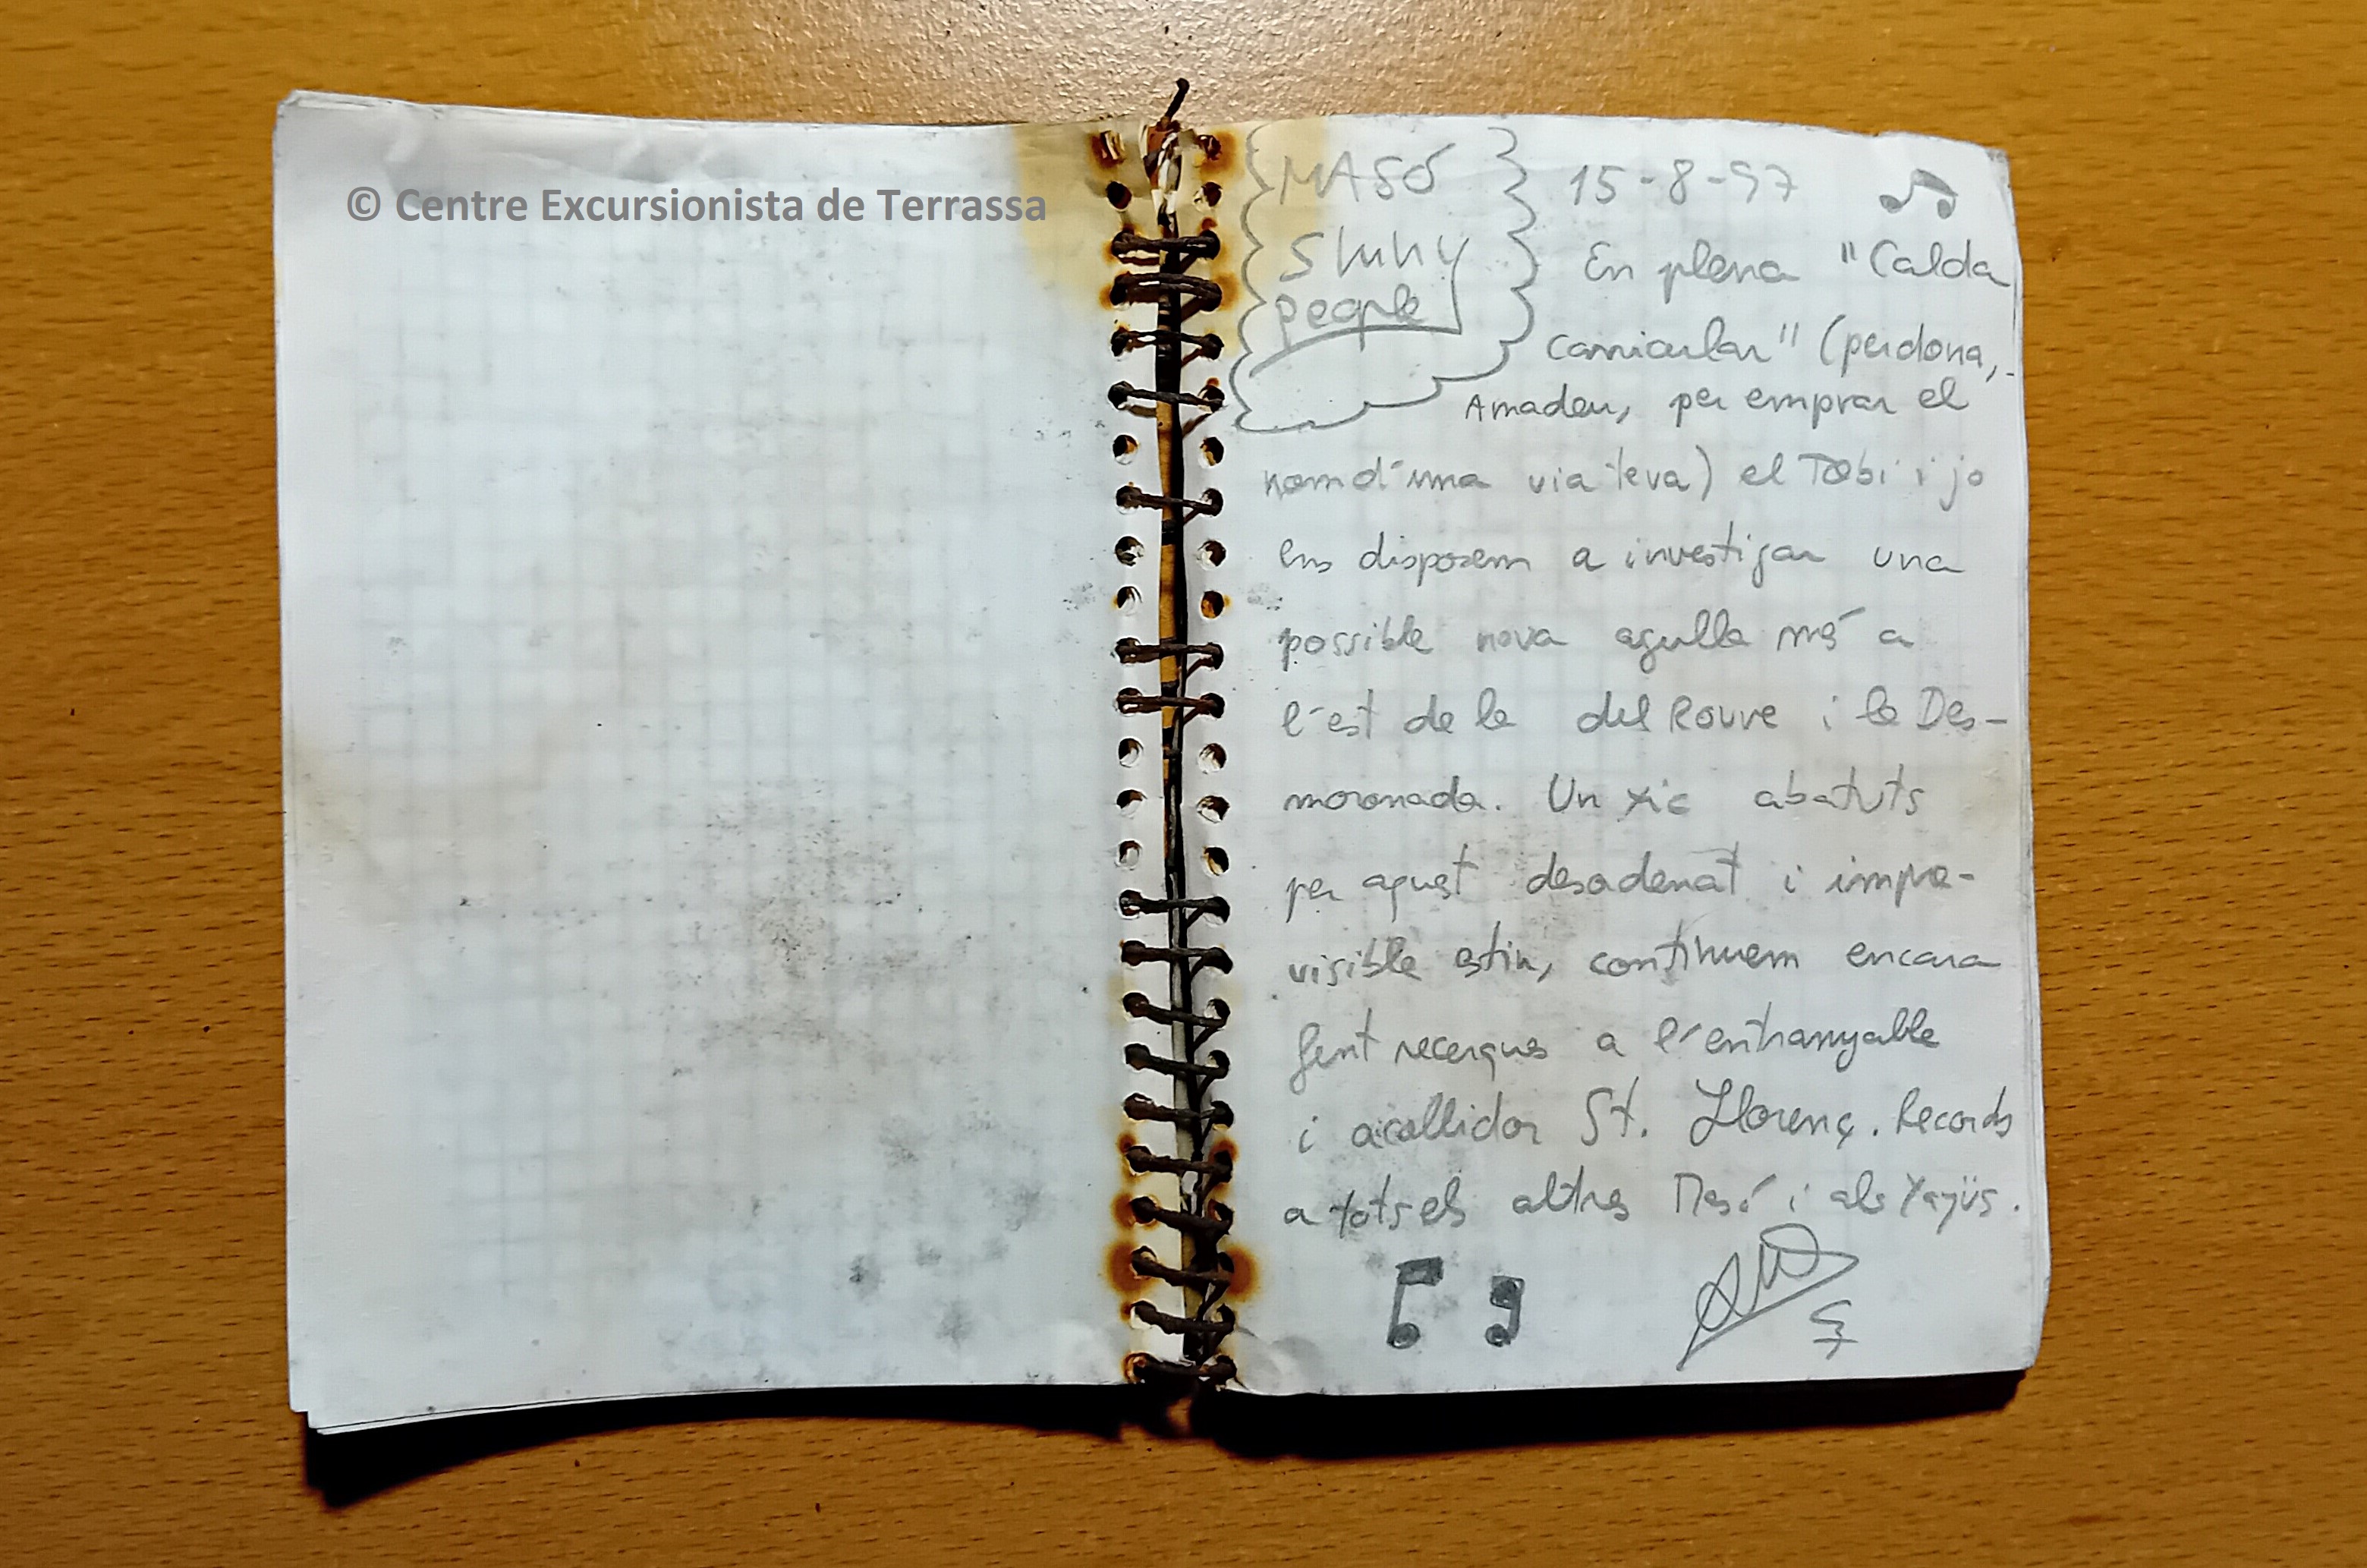 © Centre Excursionista de Terrassa
MASÓ
Shiny
people
15-8-97
En plena "Calda
Canicular" (perdona,
Amadeu, per emprar el
nom d'una via teva) el Tobi i jo
ens disposem a investigar una
possible nova agulla més a
l'est de la del Rouve i la Des-
moronada. Un xic abatuts
per aquest desodenat i impre-
visible estiu, continuem encara
fent recerques a l'entranyable
i acollidor St. Llorenç. Records
a tots els altres Masó i als Yayüs.